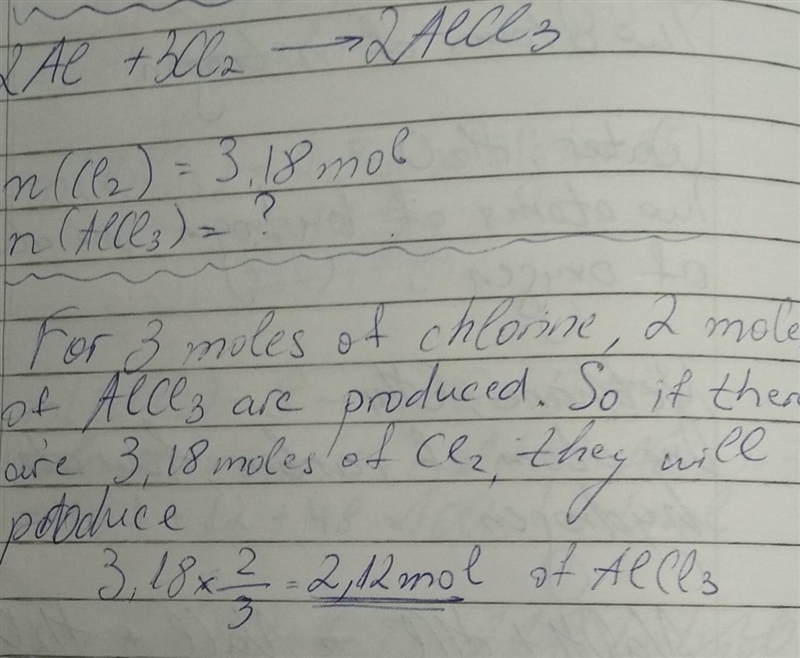 2Al + 3Cl₂ → 2AlCl₃
n(Cl₂) = 3,18 mol
n(AlCl₃) = ?
For 3 moles of chlorine, 2 mole
of AlCl₃ are produced. So if ther
are 3,18 moles of Cl₂, they will
produce
3,18 × 2/3 = 2,12 mol of AlCl₃